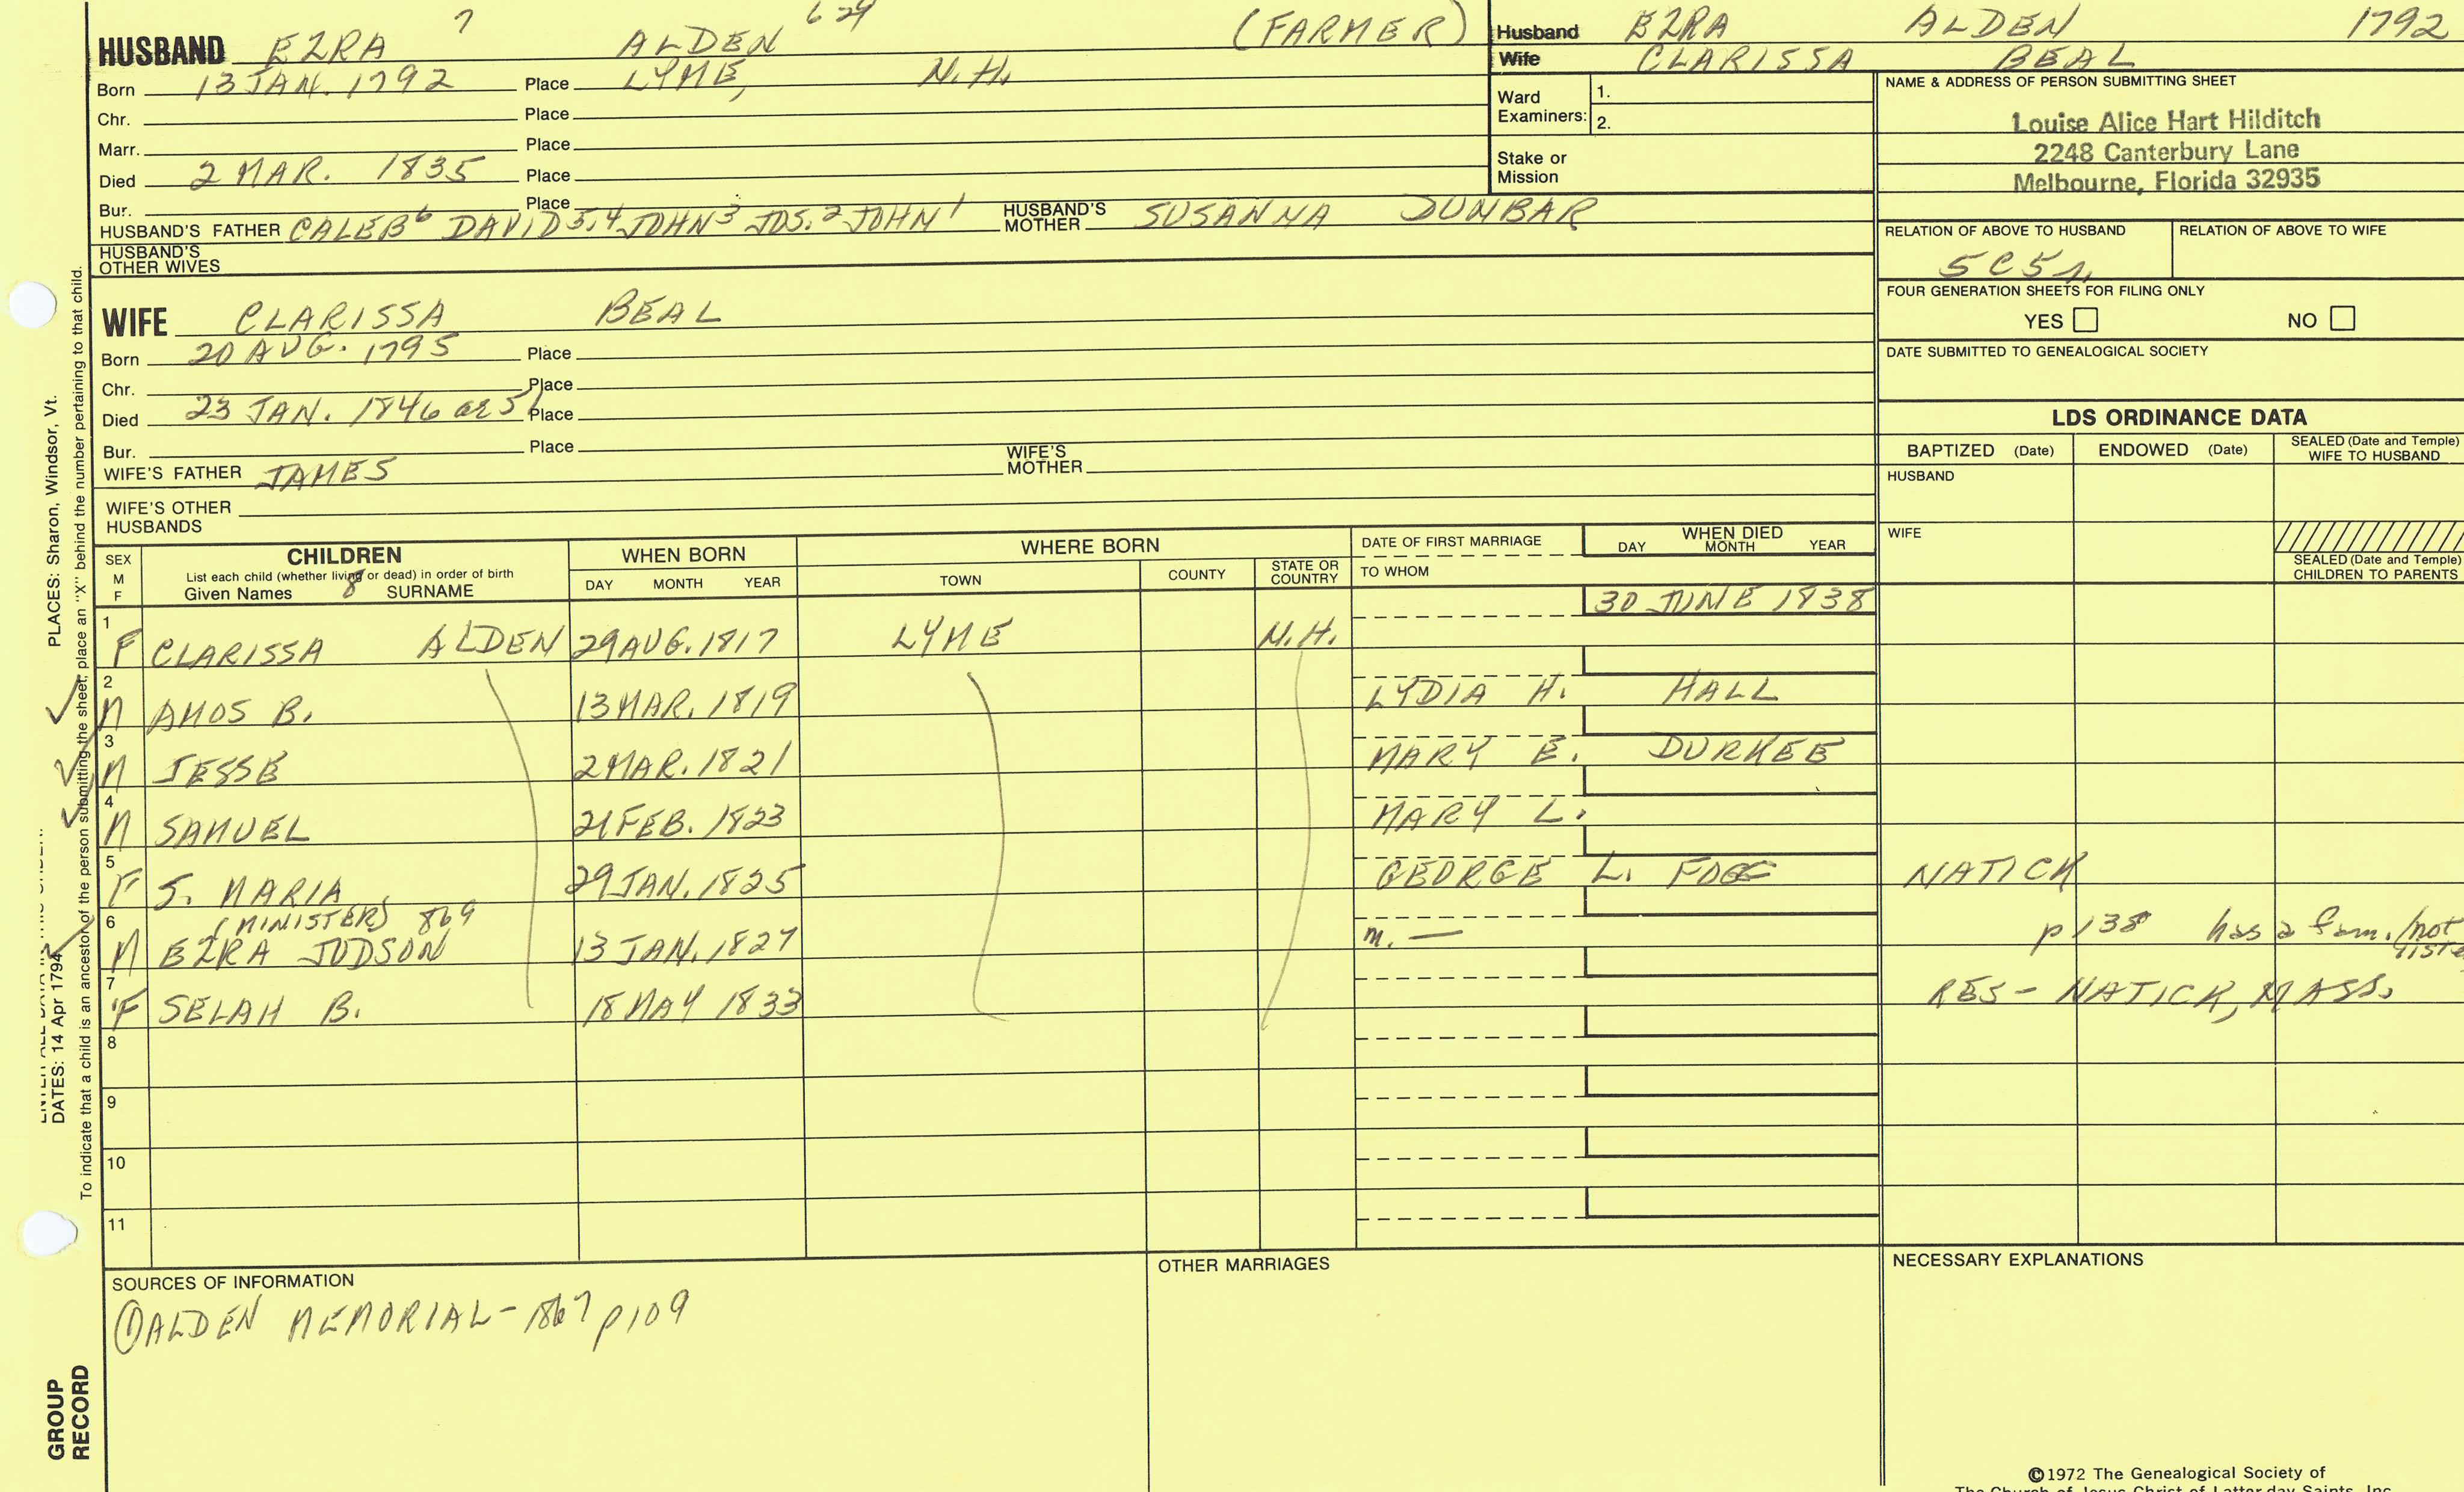 7 629
HUSBAND EZRA ALDEN (FARMER)
Born 13 JAN. 1792 Place LYME, N.H.
Chr. Place
Marr. Place
Died 2 MAR. 1835 Place
Bur. Place
HUSBAND'S FATHER CALEB6 DAVID5,4 JOHN3 JOS.2 JOHN1 HUSBAND'S MOTHER SUSANNA DUNBAR
HUSBAND'S OTHER WIVES
WIFE CLARISSA BEAL
Born 20 AUG. 1795 Place
Chr. Place
Died 23 JAN. 1846 or 51 Place
Bur. Place
WIFE'S FATHER JAMES WIFE'S MOTHER
WIFE'S OTHER HUSBANDS
Husband EZRA ALDEN 1792
Wife CLARISSA BEAL
Ward Examiners: 1.
2.
Stake or Mission
NAME & ADDRESS OF PERSON SUBMITTING SHEET
Louise Alice Hart Hilditch
2248 Canterbury Lane
Melbourne, Florida 32935
RELATION OF ABOVE TO HUSBAND RELATION OF ABOVE TO WIFE
5C5r.
FOUR GENERATION SHEETS FOR FILING ONLY
YES NO
DATE SUBMITTED TO GENEALOGICAL SOCIETY
LDS ORDINANCE DATA
BAPTIZED (Date) ENDOWED (Date) SEALED (Date and Temple) WIFE TO HUSBAND
HUSBAND
WIFE
SEALED (Date and Temple) CHILDREN TO PARENTS
SEX M F
CHILDREN
List each child (whether living or dead) in order of birth
Given Names 8 SURNAME
WHEN BORN
DAY MONTH YEAR
WHERE BORN
TOWN COUNTY STATE OR COUNTRY
DATE OF FIRST MARRIAGE
TO WHOM
WHEN DIED
DAY MONTH YEAR
30 JUNE 1838
1 F CLARISSA ALDEN 29 AUG. 1817 LYME N.H.
2 M AMOS B. 13 MAR. 1819 LYDIA H. HALL
3 M JESSE 2 MAR. 1821 MARY E. DURKEE
4 M SAMUEL 21 FEB. 1823 MARY L.
5 F S. MARIA 29 JAN. 1825 GEORGE L. FOGG NATICK
(MINISTER) 869
6 M EZRA JUDSON 13 JAN. 1827 m. — p138 has a fam./not liste
7 F SELAH B. 18 MAY 1833 RES - NATICK, MASS.
8
9
10
11
SOURCES OF INFORMATION
① ALDEN MEMORIAL - 1867 p109
OTHER MARRIAGES
NECESSARY EXPLANATIONS
©1972 The Genealogical Society of
The Church of Jesus Christ of Latter-day Saints, Inc.
DATES: 14 Apr 1794
PLACES: Sharon, Windsor, Vt.
To indicate that a child is an ancestor of the person submitting the sheet, place an "X" behind the number pertaining to that child.
GROUP RECORD